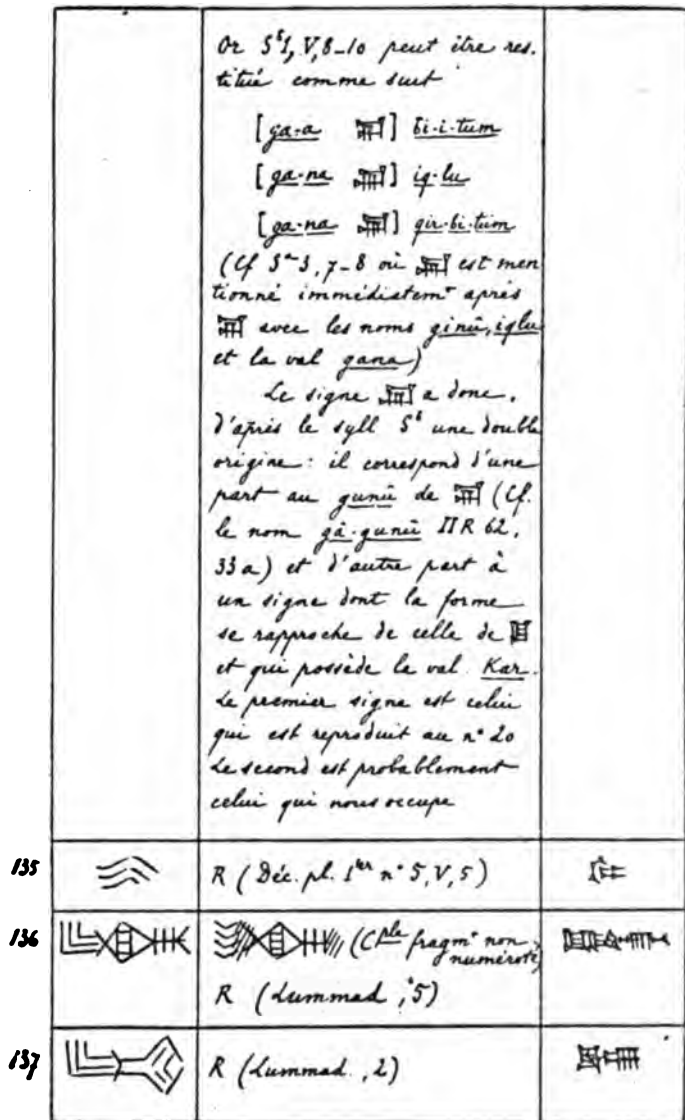 Or Sᵇ1, V, 8-10 peut être res-
titué comme suit
[ga-a 𒃷] bi-i-tum
[ga-na 𒃷] iq-lu
[ga-na 𒃷] qir-bi-tum
(Cf Sᵃ 3, 7-8 où est men
tionné immédiatemᵗ après
avec les noms ginû, iqlu
et la val gana)
Le signe a donc,
d'après le syll Sᵇ une double
origine: il correspond d'une
part au gunû de (Cf.
le nom gà-gunû II R 62,
33 a) et d'autre part à
un signe dont la forme
se rapproche de celle de
et qui possède la val. Kar.
Le premier signe est celui
qui est reproduit au n° 20
Le second est probablement
celui qui nous occupe
135 R (Déc. pl. 1ᵗᵉʳ n° 5, V, 5)
136 (Cᵖˡᵉ fragmᵗ non
numéroté)
R (Lummad, 5)
137 R (Lummad., 2)